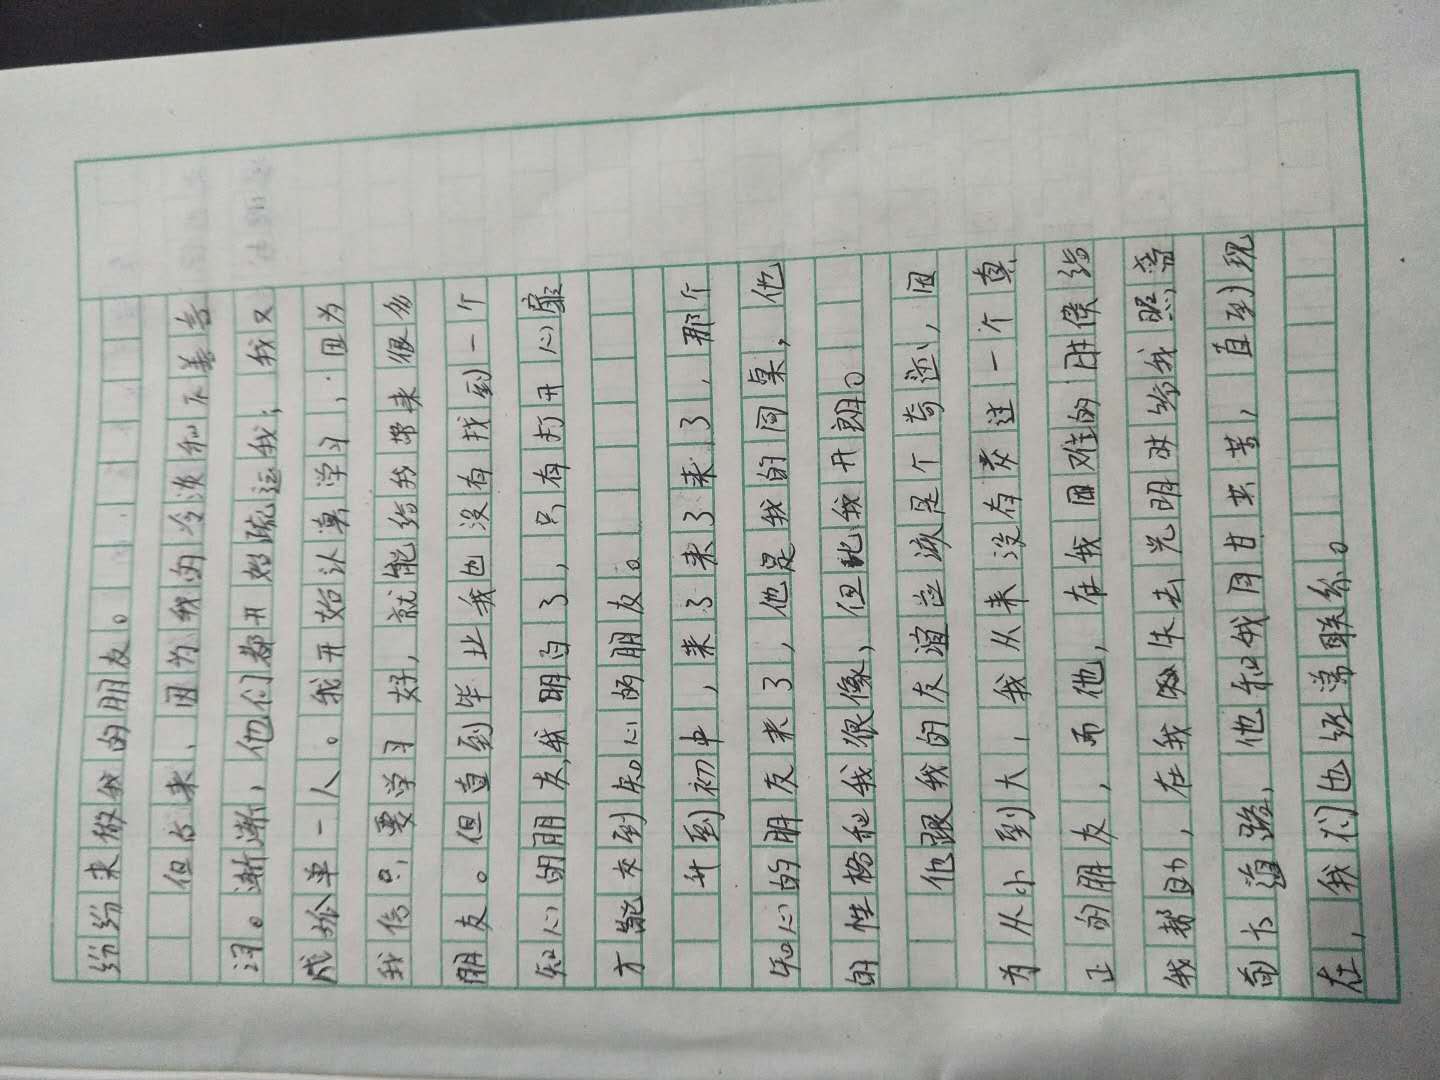 纷纷来做我的朋友。
但后来、因为我的冷淡和不善言
词。渐渐，他们都开始疏远我；我又
成孤单一人。我开始认真学习，因为
我信只要学习好，就能给我带来很多
朋友。但直到毕业我也没有找到一个
知心的朋友，我明白了，只有打开心扉
才能交到知心的朋友。
升到初中，来了来了来了，那个
知心的朋友来了，他是我的同桌，他
的性格和我很像、但比我开朗。
他跟我的友谊应该是个奇迹，因
为从小到大，我从来没有交过一个真
正的朋友，而他，在我困难的时候给
我帮助，在我失去光明时给我照亮
前方道路、他和我同甘共苦，直到现
在，我们也经常联系。